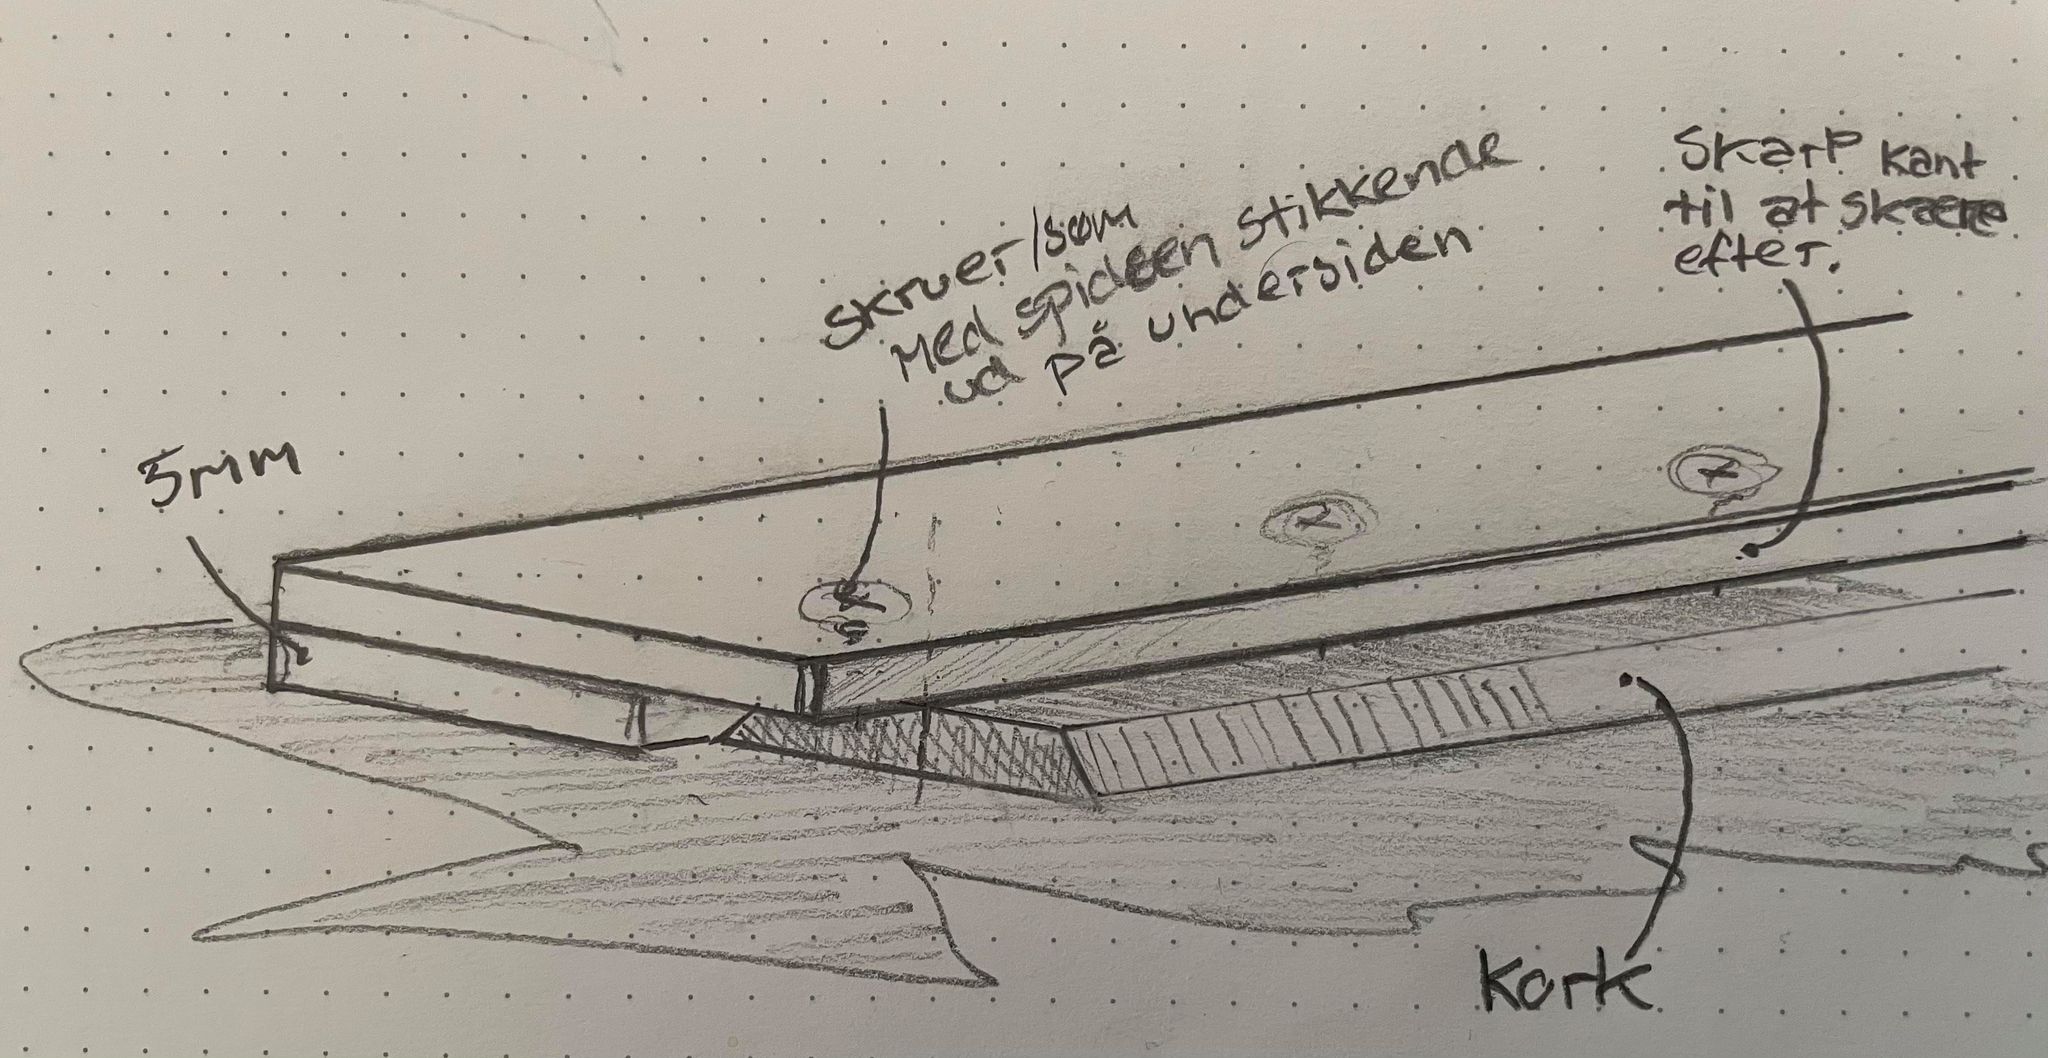 5mm
skruer/søm
med spidsen stikkende
ud på undersiden
Skarp kant
til at skære
efter.
Kork